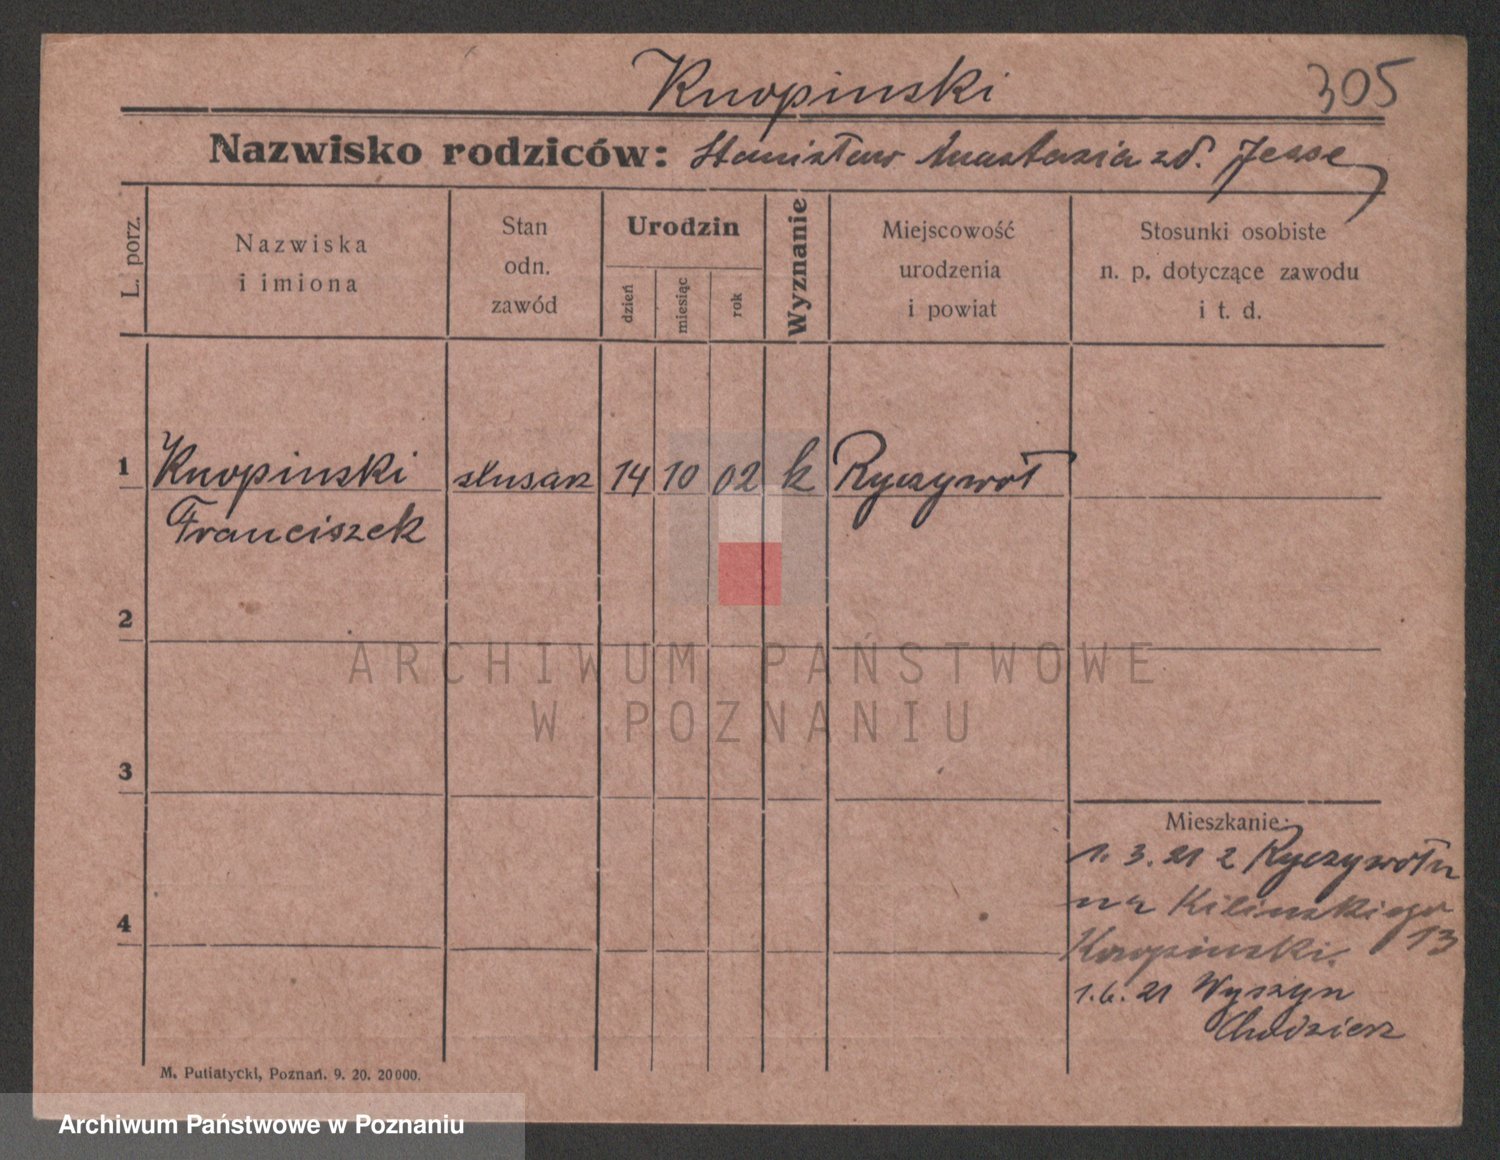 Knopinski
305
Nazwisko rodziców: Stanisław Anastazia zd. Jesse
L. porz.
Nazwiska
i imiona
Stan
odn.
zawód
Urodzin
dzień
miesiąc
rok
Wyznanie
Miejscowość
urodzenia
i powiat
Stosunki osobiste
n. p. dotyczące zawodu
i t. d.
1 Knopinski ślusarz 14 10 02 k Ryczywół
Franciszek
2
3
4
Mieszkanie:
1. 3. 21 z Ryczywołu
na Kilinskiego
13
Knopinski.
1. 6. 21 Wyszyn
Chodzież
M. Putiatycki, Poznań. 9. 20. 20000.
ARCHIWUM PAŃSTWOWE
W POZNANIU
Archiwum Państwowe w Poznaniu